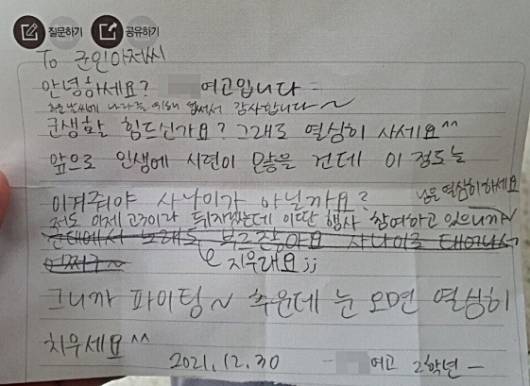 질문하기 공유하기
To 군인아저씨
안녕하세요? 여고입니다
추운날씨에 나라를 위해 힘써서 감사합니다~
군생활 힘드신가요? 그래도 열심히 사세요^^
앞으로 인생에 시련이 많을 건데 이 정도는
이겨줘야 사나이가 아닐까요?
저도 이제 고3이라 뒤지겠는데 이딴 행사 참여하고 있으니까
님은 열심히하세요
군대에서 노래도 부르잖아요 사나이로 태어나서
어쩌구~
지우래요;;
그니까 파이팅~ 추운데 눈 오면 열심히
치우세요^^
2021.12.30 - 여고 2학년 -